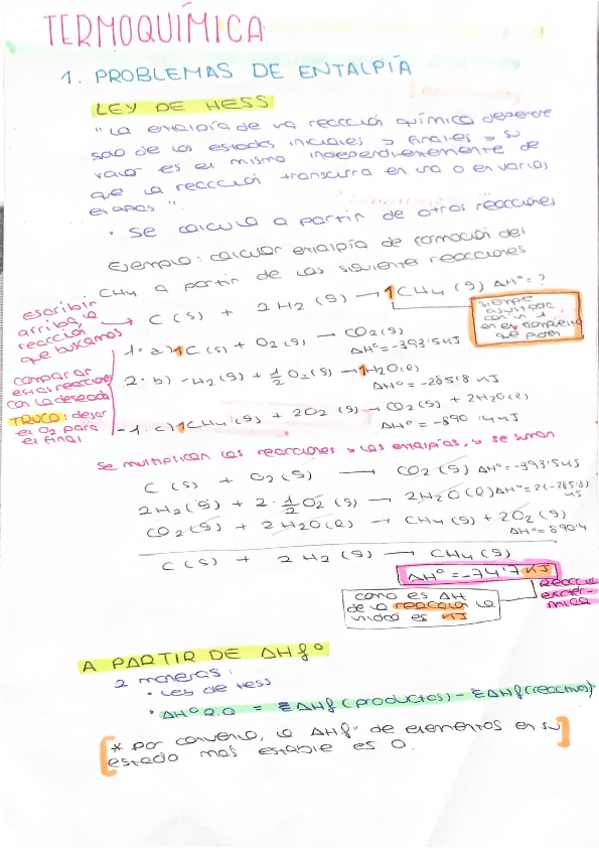 TERMOQUÍMICA
1. PROBLEMAS DE ENTALPÍA
LEY DE HESS
"La entalpía de una reacción química depende
solo de los estados iniciales y finales y su
valor es el mismo independientemente de
que la reacción transcurra en una o en varias
etapas".
· Se calcula a partir de otras reacciones
Ejemplo: calcular entalpía de formación del
CH4 a partir de las siguientes reacciones
escribir
arriba la
reacción
que buscamos
C (s) + 2H2 (g) → 1CH4 (g) ΔHº = ?
siempre
ajustada
con un 1
en el compuesto
que piden
comparar
estas reacciones
con la deseada
TRUCO: dejar
el O2 para
el final
1· a) 1C (s) + O2 (g) → CO2 (g)
ΔHº = -393'5 KJ
2· b) H2 (g) + 1/2 O2 (g) → 1H2O (l)
ΔHº = -285'8 KJ
-1· c) 1CH4 (g) + 2O2 (g) → CO2 (g) + 2H2O (l)
ΔHº = -890'4 KJ
Se multiplican las reacciones y las entalpías, y se suman
C (s) + O2 (g) → CO2 (g) ΔHº = -393'5 KJ
2H2 (g) + 2· 1/2 O2 (g) → 2H2O (l) ΔHº = 2(-285'8) KJ
CO2 (g) + 2H2O (l) → CH4 (g) + 2O2 (g)
ΔHº = 890'4
C (s) + 2H2 (g) → CH4 (g)
ΔHº = -74'7 KJ
Reacción
exotér-
mica
como es ΔH
de la reacción la
unidad es KJ
A PARTIR DE ΔHfº
2 maneras:
· Ley de Hess
· ΔHº R.Q = ΣΔHf (productos) - ΣΔHf (reactivos)
[* Por convenio, la ΔHfº de elementos en su
estado más estable es 0.]